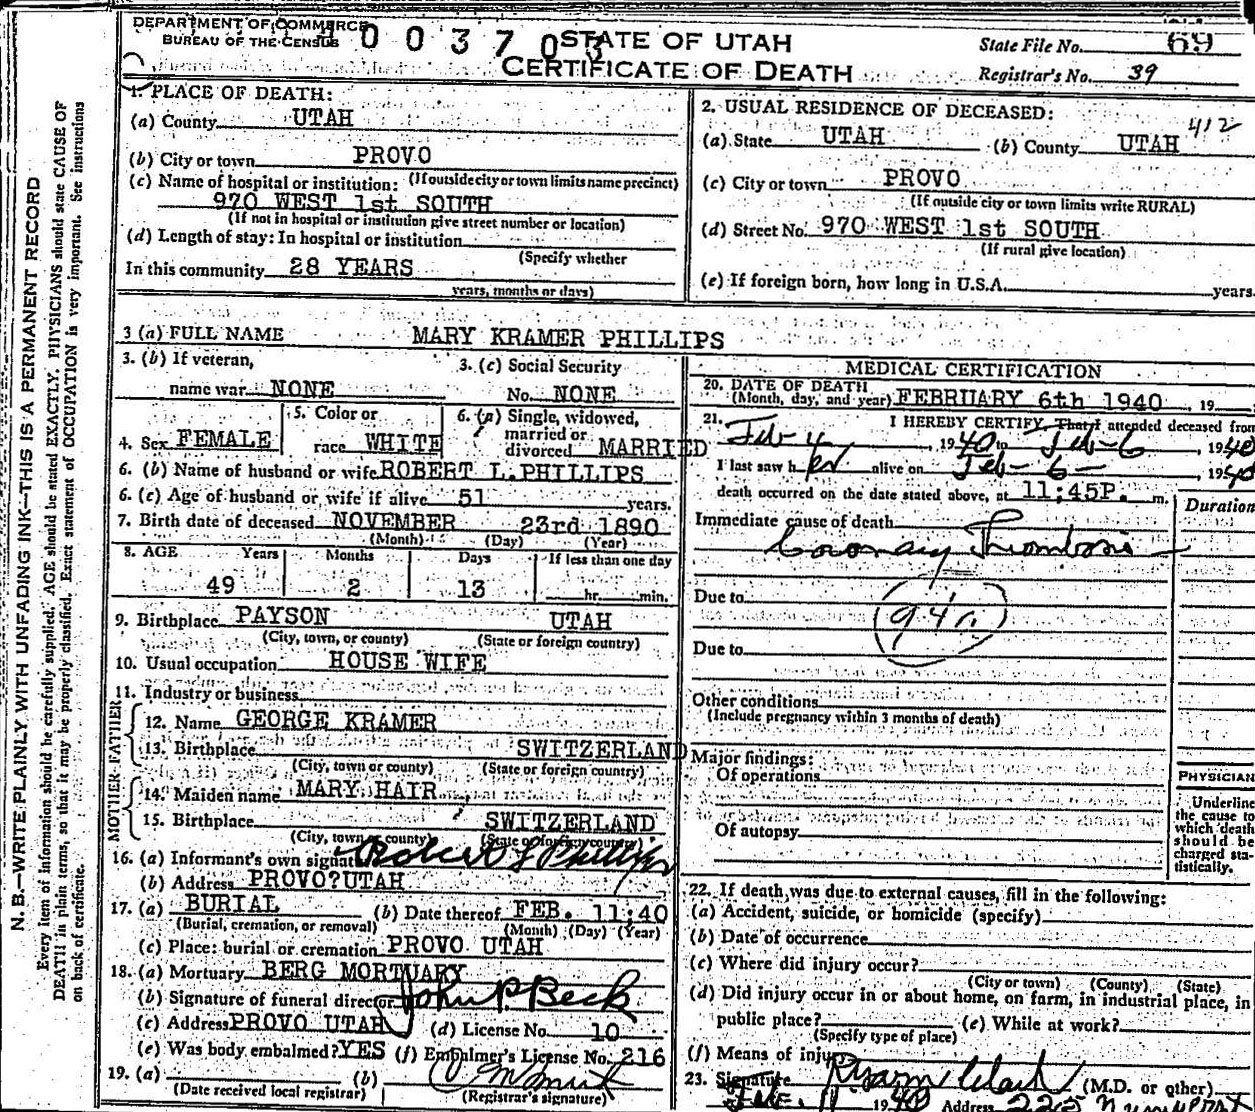 DEPARTMENT OF COMMERCE
BUREAU OF THE CENSUS
003703
STATE OF UTAH
CERTIFICATE OF DEATH
State File No. 69
Registrar's No. 39
1. PLACE OF DEATH:
(a) County UTAH
(b) City or town PROVO
(If outside city or town limits name precinct)
(c) Name of hospital or institution:
970 WEST 1st SOUTH
(If not in hospital or institution give street number or location)
(d) Length of stay: In hospital or institution
(Specify whether
In this community 28 YEARS
years, months or days)
2. USUAL RESIDENCE OF DECEASED:
412
(a) State UTAH (b) County UTAH
(c) City or town PROVO
(If outside city or town limits write RURAL)
(d) Street No. 970 WEST 1st SOUTH
(If rural give location)
(e) If foreign born, how long in U.S.A. years.
3 (a) FULL NAME MARY KRAMER PHILLIPS
3. (b) If veteran,
name war NONE
3. (c) Social Security
No. NONE
4. Sex FEMALE
5. Color or
race WHITE
6. (a) Single, widowed,
married or
divorced MARRIED
6. (b) Name of husband or wife ROBERT L. PHILLIPS
6. (c) Age of husband or wife if alive 51 years.
7. Birth date of deceased NOVEMBER 23rd 1890
(Month) (Day) (Year)
8. AGE Years Months Days If less than one day
49 2 13 hr. min.
9. Birthplace PAYSON UTAH
(City, town, or county) (State or foreign country)
10. Usual occupation HOUSE WIFE
11. Industry or business
FATHER
12. Name GEORGE KRAMER
13. Birthplace SWITZERLAND
(City, town or county) (State or foreign country)
MOTHER
14. Maiden name MARY HAIR
15. Birthplace SWITZERLAND
(City, town or county) (State or foreign country)
16. (a) Informant's own signat Robert L Phillips
(b) Address PROVO?UTAH
17. (a) BURIAL (b) Date thereof FEB. 11:40
(Burial, cremation, or removal) (Month) (Day) (Year)
(c) Place: burial or cremation PROVO UTAH
18. (a) Mortuary BERG MORTUARY
(b) Signature of funeral director John P. Beck
(c) Address PROVO UTAH (d) License No. 10
(e) Was body embalmed? YES (f) Embalmer's License No. 216
19. (a) (b)
(Date received local registrar) (Registrar's signature)
MEDICAL CERTIFICATION
20. DATE OF DEATH
(Month, day, and year) FEBRUARY 6th 1940, 19
21. I HEREBY CERTIFY, That I attended deceased from
Feb 4, 1940 to Feb-6, 1940
I last saw her alive on Feb-6-, 1940
death occurred on the date stated above, at 11:45P. m.
Duration
Immediate cause of death
Coronary Thrombosis
Due to
94
Due to
Other conditions
(Include pregnancy within 3 months of death)
Major findings:
Of operations
Of autopsy
PHYSICIAN
Underline
the cause to
which death
should be
charged sta-
tistically.
22. If death was due to external causes, fill in the following:
(a) Accident, suicide, or homicide (specify)
(b) Date of occurrence
(c) Where did injury occur?
(City or town) (County) (State)
(d) Did injury occur in or about home, on farm, in industrial place, in
public place? (e) While at work?
(Specify type of place)
(f) Means of injury
23. Signature Clark (M.D. or other)
Feb. 11 1940 Address 225
N. B.—WRITE PLAINLY WITH UNFADING INK—THIS IS A PERMANENT RECORD
Every item of information should be carefully supplied. AGE should be stated EXACTLY. PHYSICIANS should state CAUSE OF
DEATH in plain terms, so that it may be properly classified. Exact statement of OCCUPATION is very important. See instructions
on back of certificate.